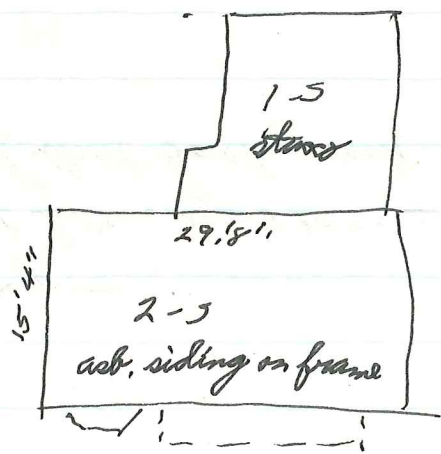 1-S
stucco
29'8"
15'4"
2-S
asb. siding on frame